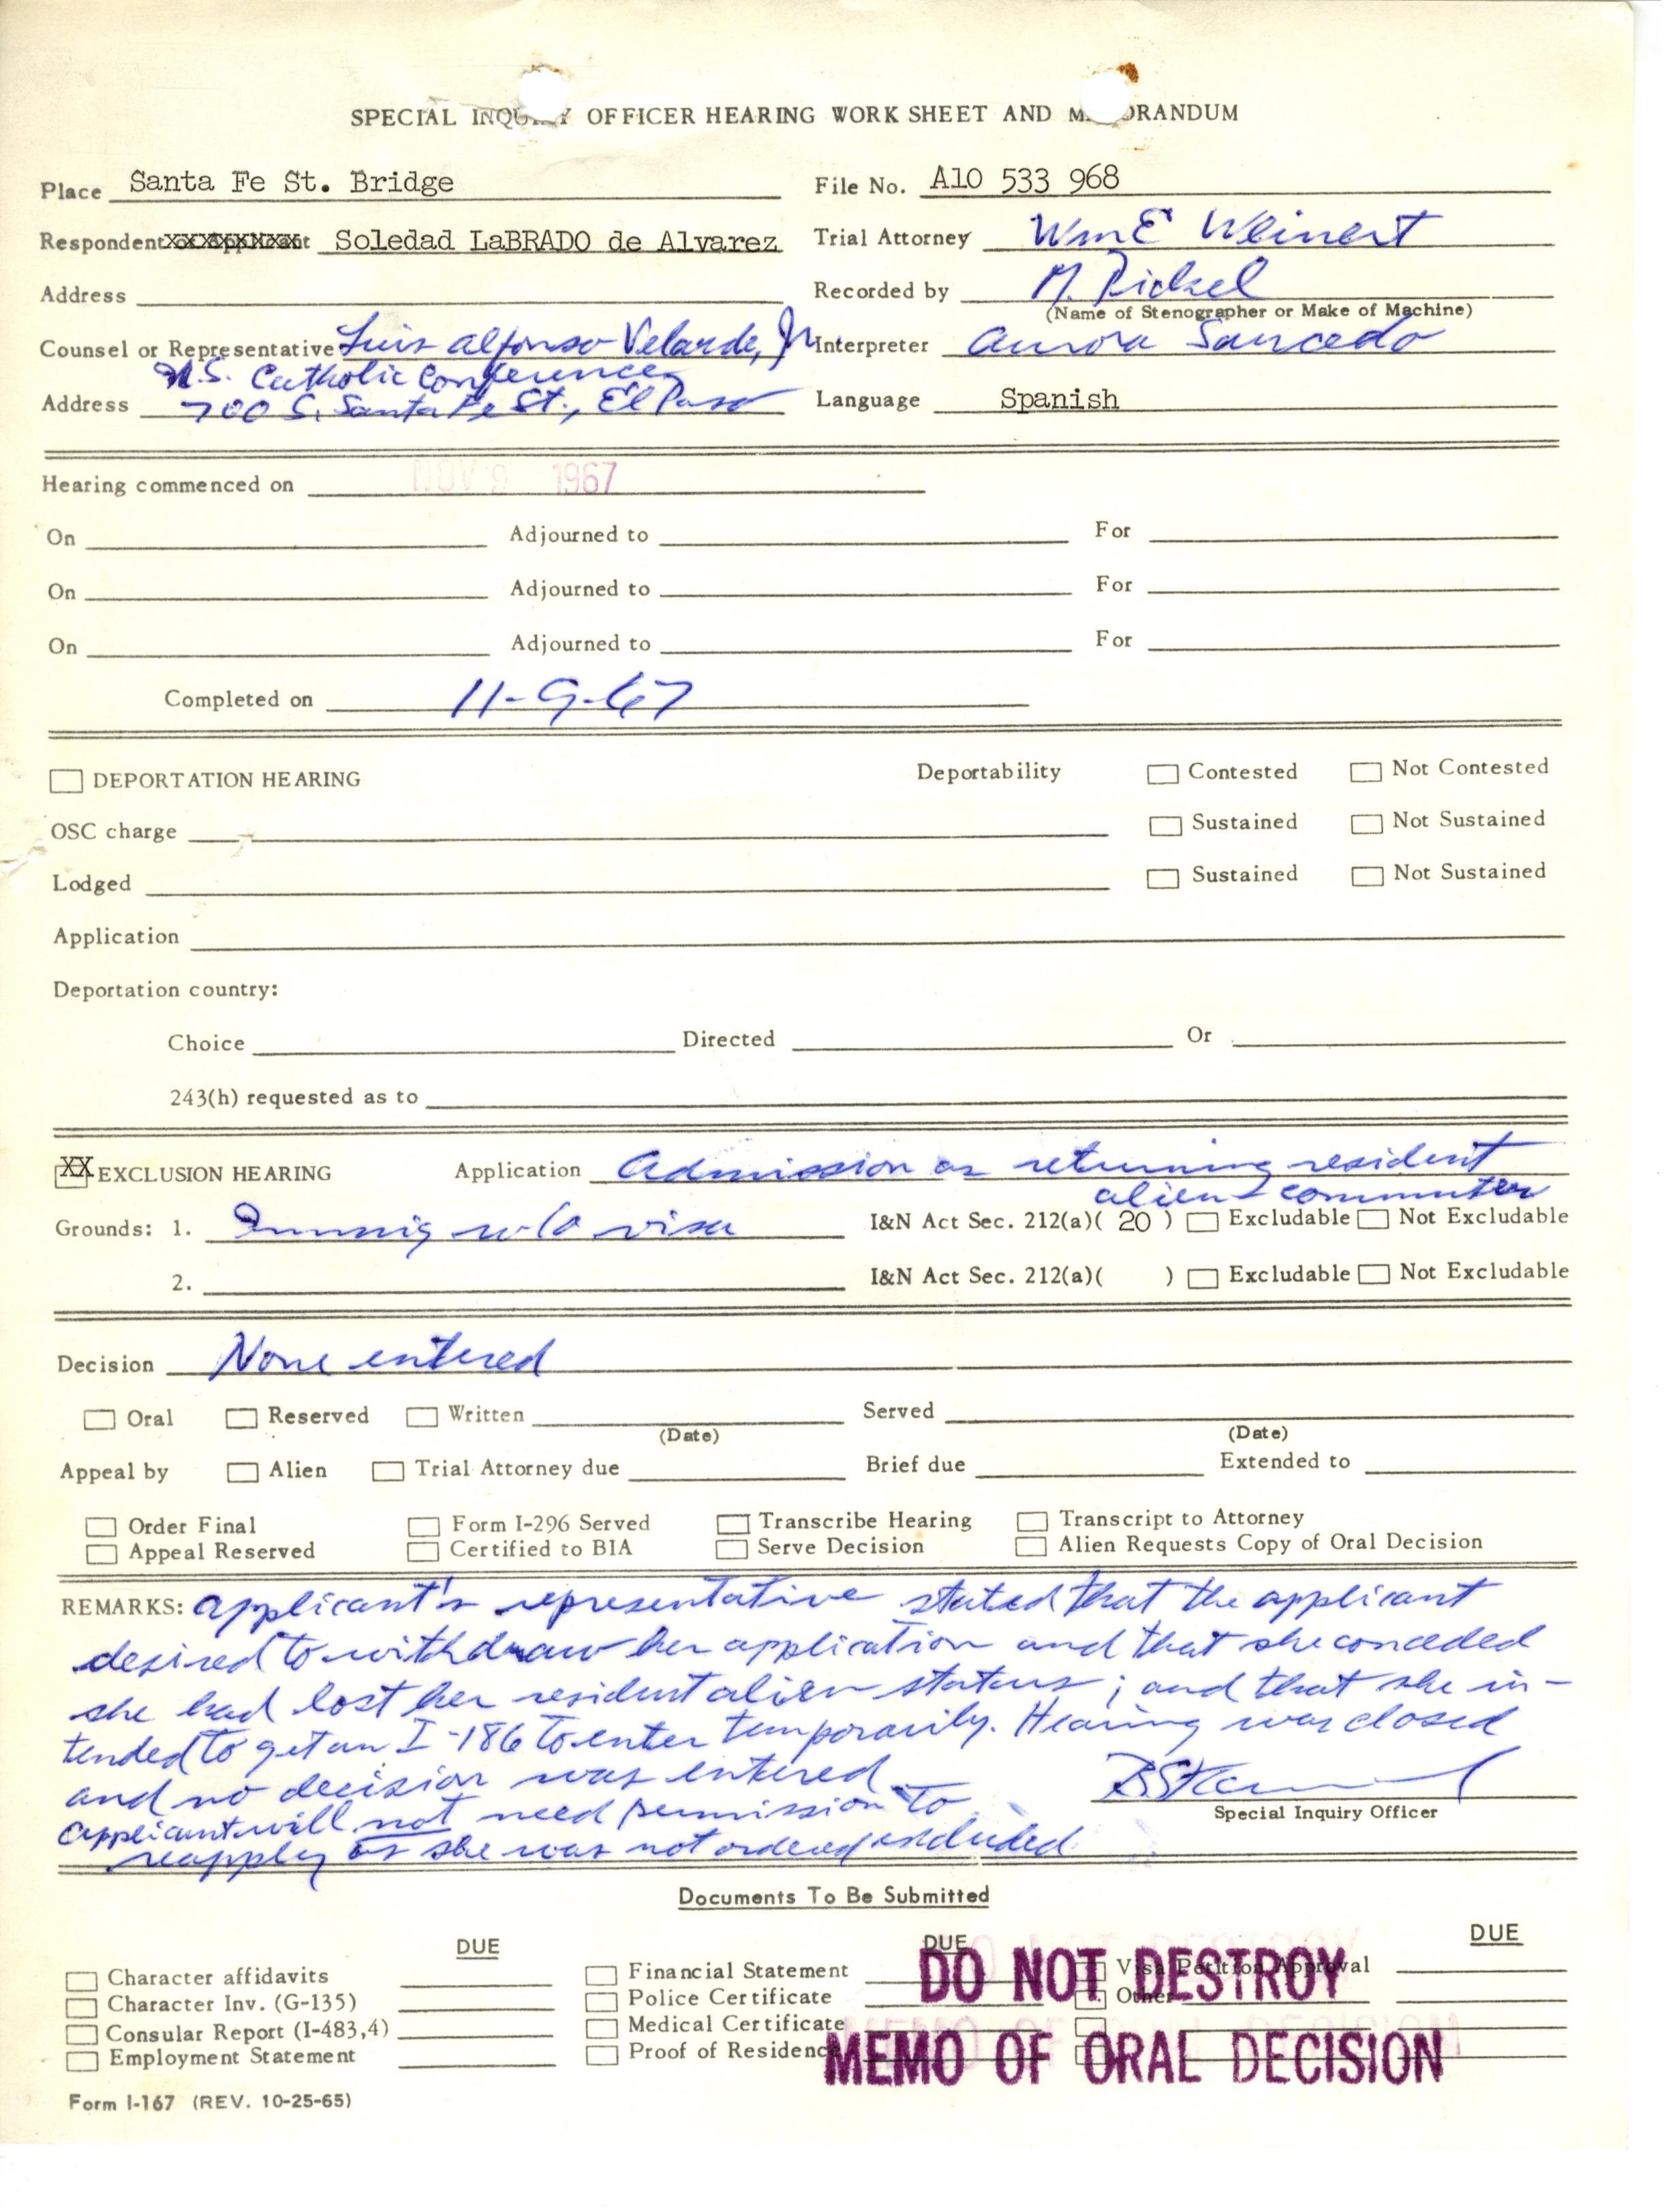 SPECIAL INQUIRY OFFICER HEARING WORK SHEET AND MEMORANDUM
Place Santa Fe St. Bridge File No. A10 533 968
Respondent Soledad LaBRADO de Alvarez Trial Attorney Wm E Weinert
Address Recorded by M.
(Name of Stenographer or Make of Machine)
Counsel or Representative Luis Alfonso Velarde, Jr Interpreter Aurora Saucedo
U.S. Catholic Conference
Address 700 S. Santa Fe St., El Paso Language Spanish
Hearing commenced on NOV 9 1967
On Adjourned to For
On Adjourned to For
On Adjourned to For
Completed on 11-9-67
DEPORTATION HEARING Deportability Contested Not Contested
OSC charge Sustained Not Sustained
Lodged Sustained Not Sustained
Application
Deportation country:
Choice Directed Or
243(h) requested as to
XX EXCLUSION HEARING Application Admission as returning resident
alien - commuter
Grounds: 1. Immig w/o visa I&N Act Sec. 212(a)( 20 ) Excludable Not Excludable
2. I&N Act Sec. 212(a)( ) Excludable Not Excludable
Decision None entered
Oral Reserved Written Served
(Date) (Date)
Appeal by Alien Trial Attorney due Brief due Extended to
Order Final Form I-296 Served Transcribe Hearing Transcript to Attorney
Appeal Reserved Certified to BIA Serve Decision Alien Requests Copy of Oral Decision
REMARKS: Applicant's representative stated that the applicant
desired to withdraw her application and that she conceded
she had lost her resident alien status; and that she in-
tended to get an I-186 to enter temporarily. Hearing was closed
and no decision was entered.
Applicant will not need permission to
Special Inquiry Officer
reapply as she was not ordered excluded
Documents To Be Submitted
DUE DUE DUE
Character affidavits Financial Statement Visa Petition Approval
Character Inv. (G-135) Police Certificate Other
Consular Report (I-483,4) Medical Certificate
Employment Statement Proof of Residence
DO NOT DESTROY
MEMO OF ORAL DECISION
Form I-167 (REV. 10-25-65)